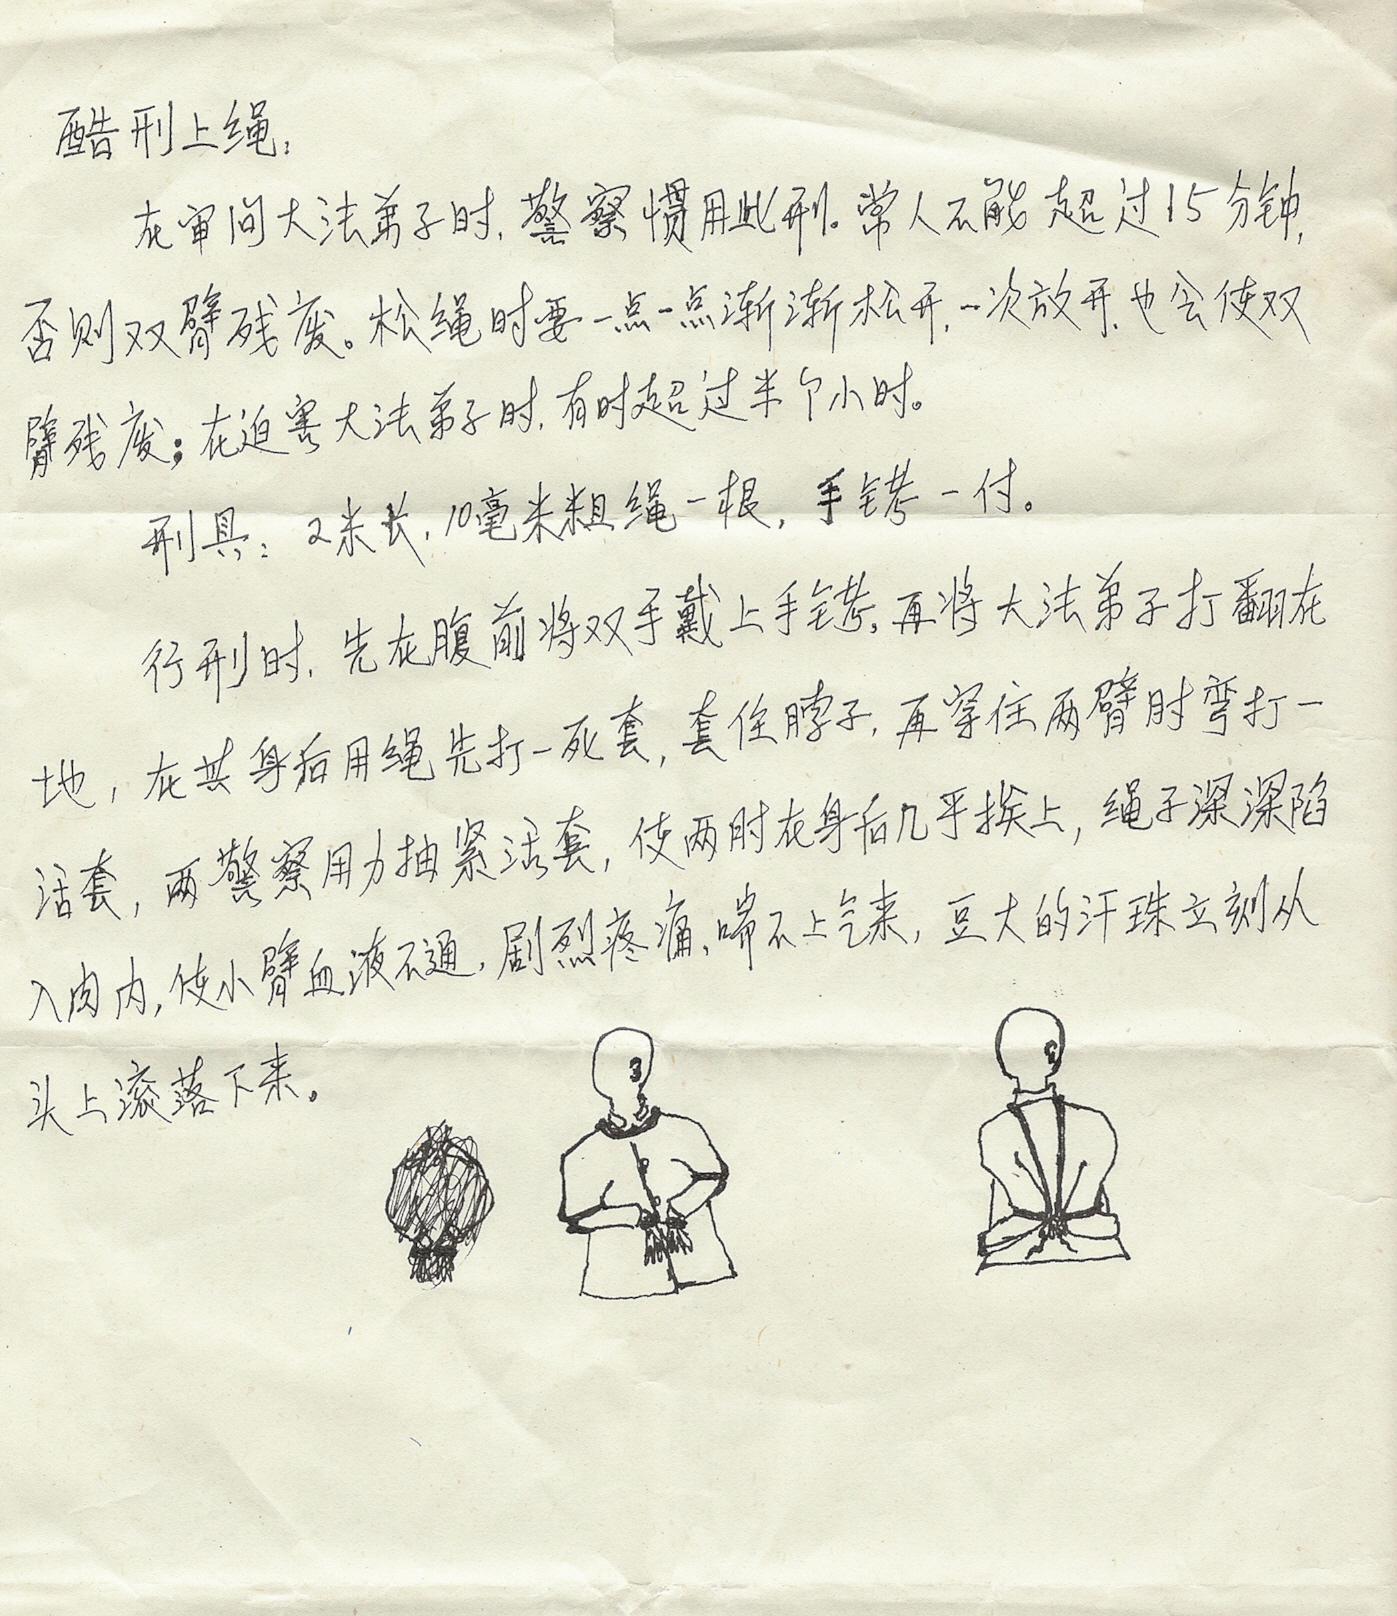 酷刑上绳:
在审问大法弟子时,警察惯用此刑。常人不能超过15分钟,
否则双臂残废。松绳时要一点一点渐渐松开,一次放开,也会使双
臂残废;在迫害大法弟子时,有时超过半个小时。
刑具:2米长,10毫米粗绳一根,手铐一付。
行刑时,先在腹前将双手戴上手铐,再将大法弟子打翻在
地,在其身后用绳先打一死套,套住脖子,再穿住两臂肘弯打一
活套,两警察用力抽紧活套,使两肘在身后几乎挨上,绳子深深陷
入肉内,使小臂血液不通,剧烈疼痛,喘不上气来,豆大的汗珠立刻从
头上滚落下来。